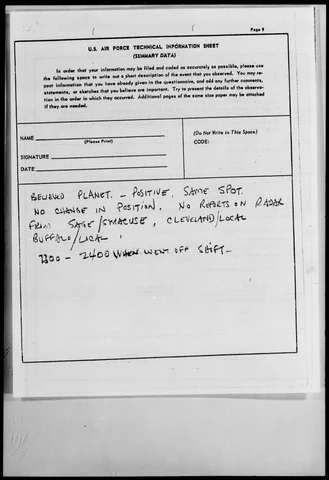 Page 8
U.S. AIR FORCE TECHNICAL INFORMATION SHEET
(SUMMARY DATA)
In order that your information may be filed and coded as accurately as possible, please use
the following space to write out a short description of the event that you observed. You may re-
peat information that you have already given in the questionnaire, and add any further comments,
statements, or sketches that you believe are important. Try to present the details of the observa-
tion in the order in which they occurred. Additional pages of the same size paper may be attached
if they are needed.
NAME
(Please Print)
SIGNATURE
DATE
(Do Not Write in This Space)
CODE:
BELIEVED PLANET. - POSITIVE. SAME SPOT.
NO CHANGE IN POSITION. NO REPORTS ON RADAR
FROM SAGE/SYRACUSE, CLEVELAND/LOCAL
BUFFALO/LOCAL.
2300 - 2400 WHEN WENT OFF SHIFT -